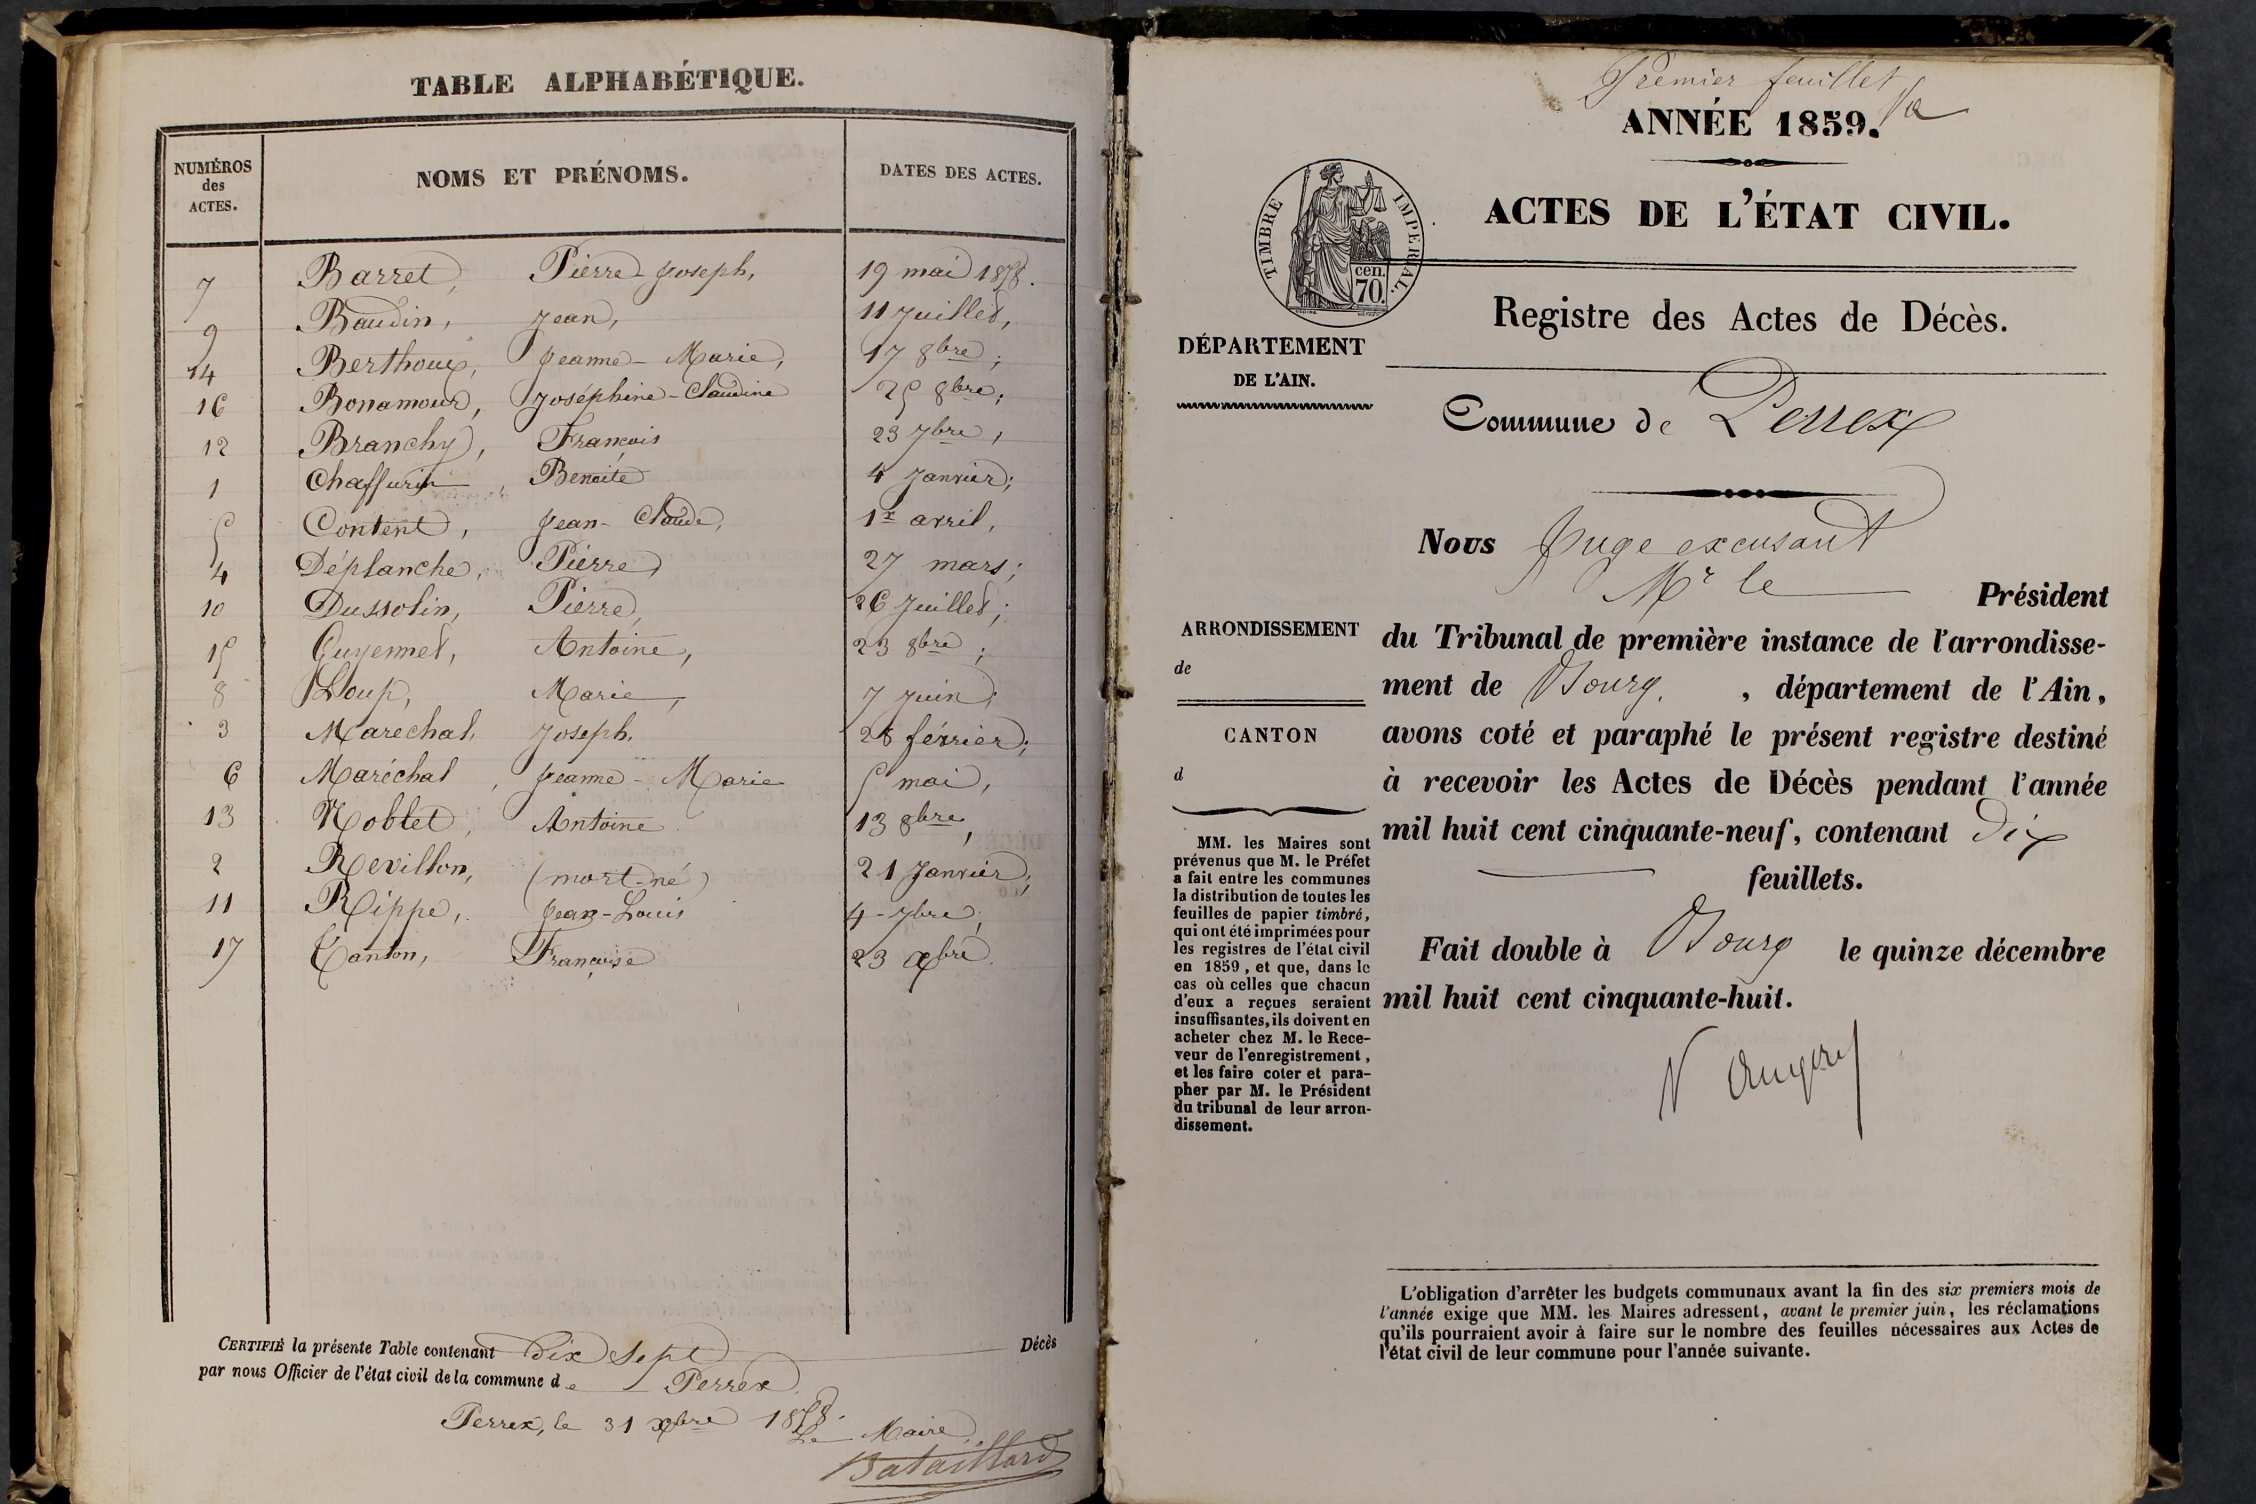 TABLE ALPHABÉTIQUE.
NUMÉROS des ACTES. NOMS ET PRÉNOMS. DATES DES ACTES.
7 Barret, Pierre-Joseph, 19 mai 1858.
9 Baudin, Jean, 11 Juillet,
14 Berthoux, Jeanne-Marie, 17 8bre;
16 Bonamour, Joséphine-Claudine 25 8bre;
12 Branchy, François 23 7bre,
1 Chaffurin, Benoite 4 Janvier;
5 Content, Jean-Claude, 1er avril,
4 Déplanche, Pierre, 27 mars;
10 Dussolin, Pierre, 26 Juillet;
15 Guyennet, Antoine, 23 8bre;
8 Loup, Marie, 7 Juin;
3 Marechal, Joseph. 28 février;
6 Maréchal, Jeanne-Marie 5 mai,
13 Noblet, Antoine 13 8bre,
2 Revillon, (mort-né) 21 Janvier;
11 Rippe, Jean-Louis 4-7bre;
17 Tanton, Françoise 23 Xbre.
CERTIFIÉ la présente Table contenant dix sept Décès
par nous Officier de l'état civil de la commune de Perrex
Perrex, le 31 Xbre 1858.
Le Maire,
Bataillard
Premier feuillet
ANNÉE 1859.
ACTES DE L'ÉTAT CIVIL.
TIMBRE IMPERIAL.
cen.
70.
Registre des Actes de Décès.
DÉPARTEMENT
DE L'AIN.
Commune de Perrex
Nous Juge excusant
Mr le Président
du Tribunal de première instance de l'arrondisse-
ment de Bourg, département de l'Ain,
avons coté et paraphé le présent registre destiné
à recevoir les Actes de Décès pendant l'année
mil huit cent cinquante-neuf, contenant dix
feuillets.
Fait double à Bourg le quinze décembre
mil huit cent cinquante-huit.
ARRONDISSEMENT
de
CANTON
d
MM. les Maires sont
prévenus que M. le Préfet
a fait entre les communes
la distribution de toutes les
feuilles de papier timbré,
qui ont été imprimées pour
les registres de l'état civil
en 1859, et que, dans le
cas où celles que chacun
d'eux a reçues seraient
insuffisantes, ils doivent en
acheter chez M. le Rece-
veur de l'enregistrement,
et les faire coter et para-
pher par M. le Président
du tribunal de leur arron-
dissement.
L'obligation d'arrêter les budgets communaux avant la fin des six premiers mois de
l'année exige que MM. les Maires adressent, avant le premier juin, les réclamations
qu'ils pourraient avoir à faire sur le nombre des feuilles nécessaires aux Actes de
l'état civil de leur commune pour l'année suivante.